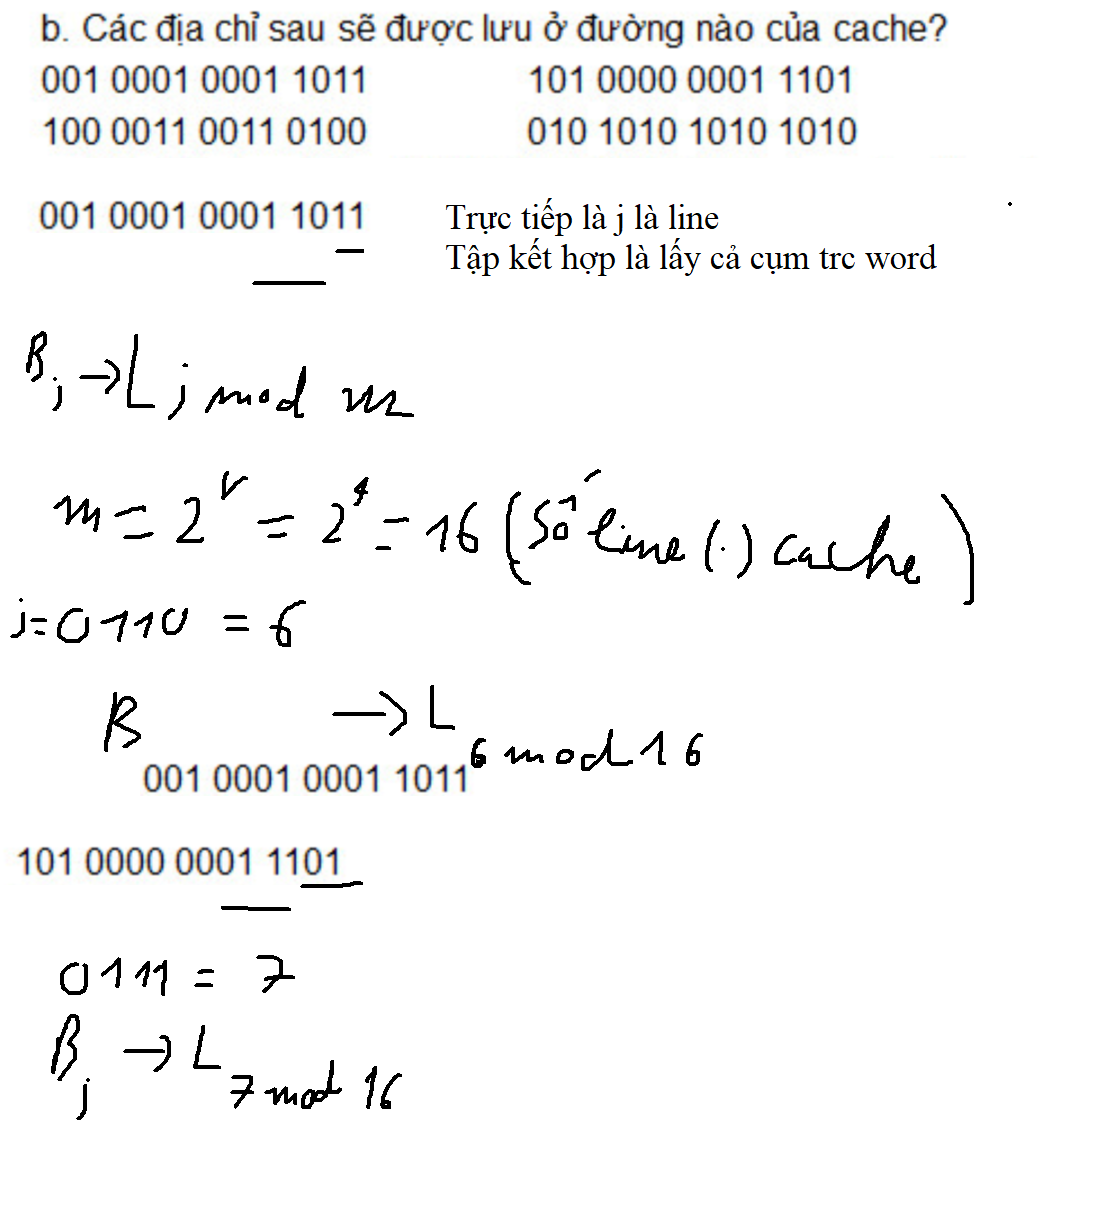 b. Các địa chỉ sau sẽ được lưu ở đường nào của cache?
001 0001 0001 1011 101 0000 0001 1101
100 0011 0011 0100 010 1010 1010 1010
001 0001 0001 1011 Trực tiếp là j là line
Tập kết hợp là lấy cả cụm trc word
Bj → L j mod m
m = 2^r = 2^4 = 16 (Số line (.) cache)
j = 0110 = 6
B 001 0001 0001 1011 → L 6 mod 16
101 0000 0001 1101
0111 = 7
Bj → L 7 mod 16